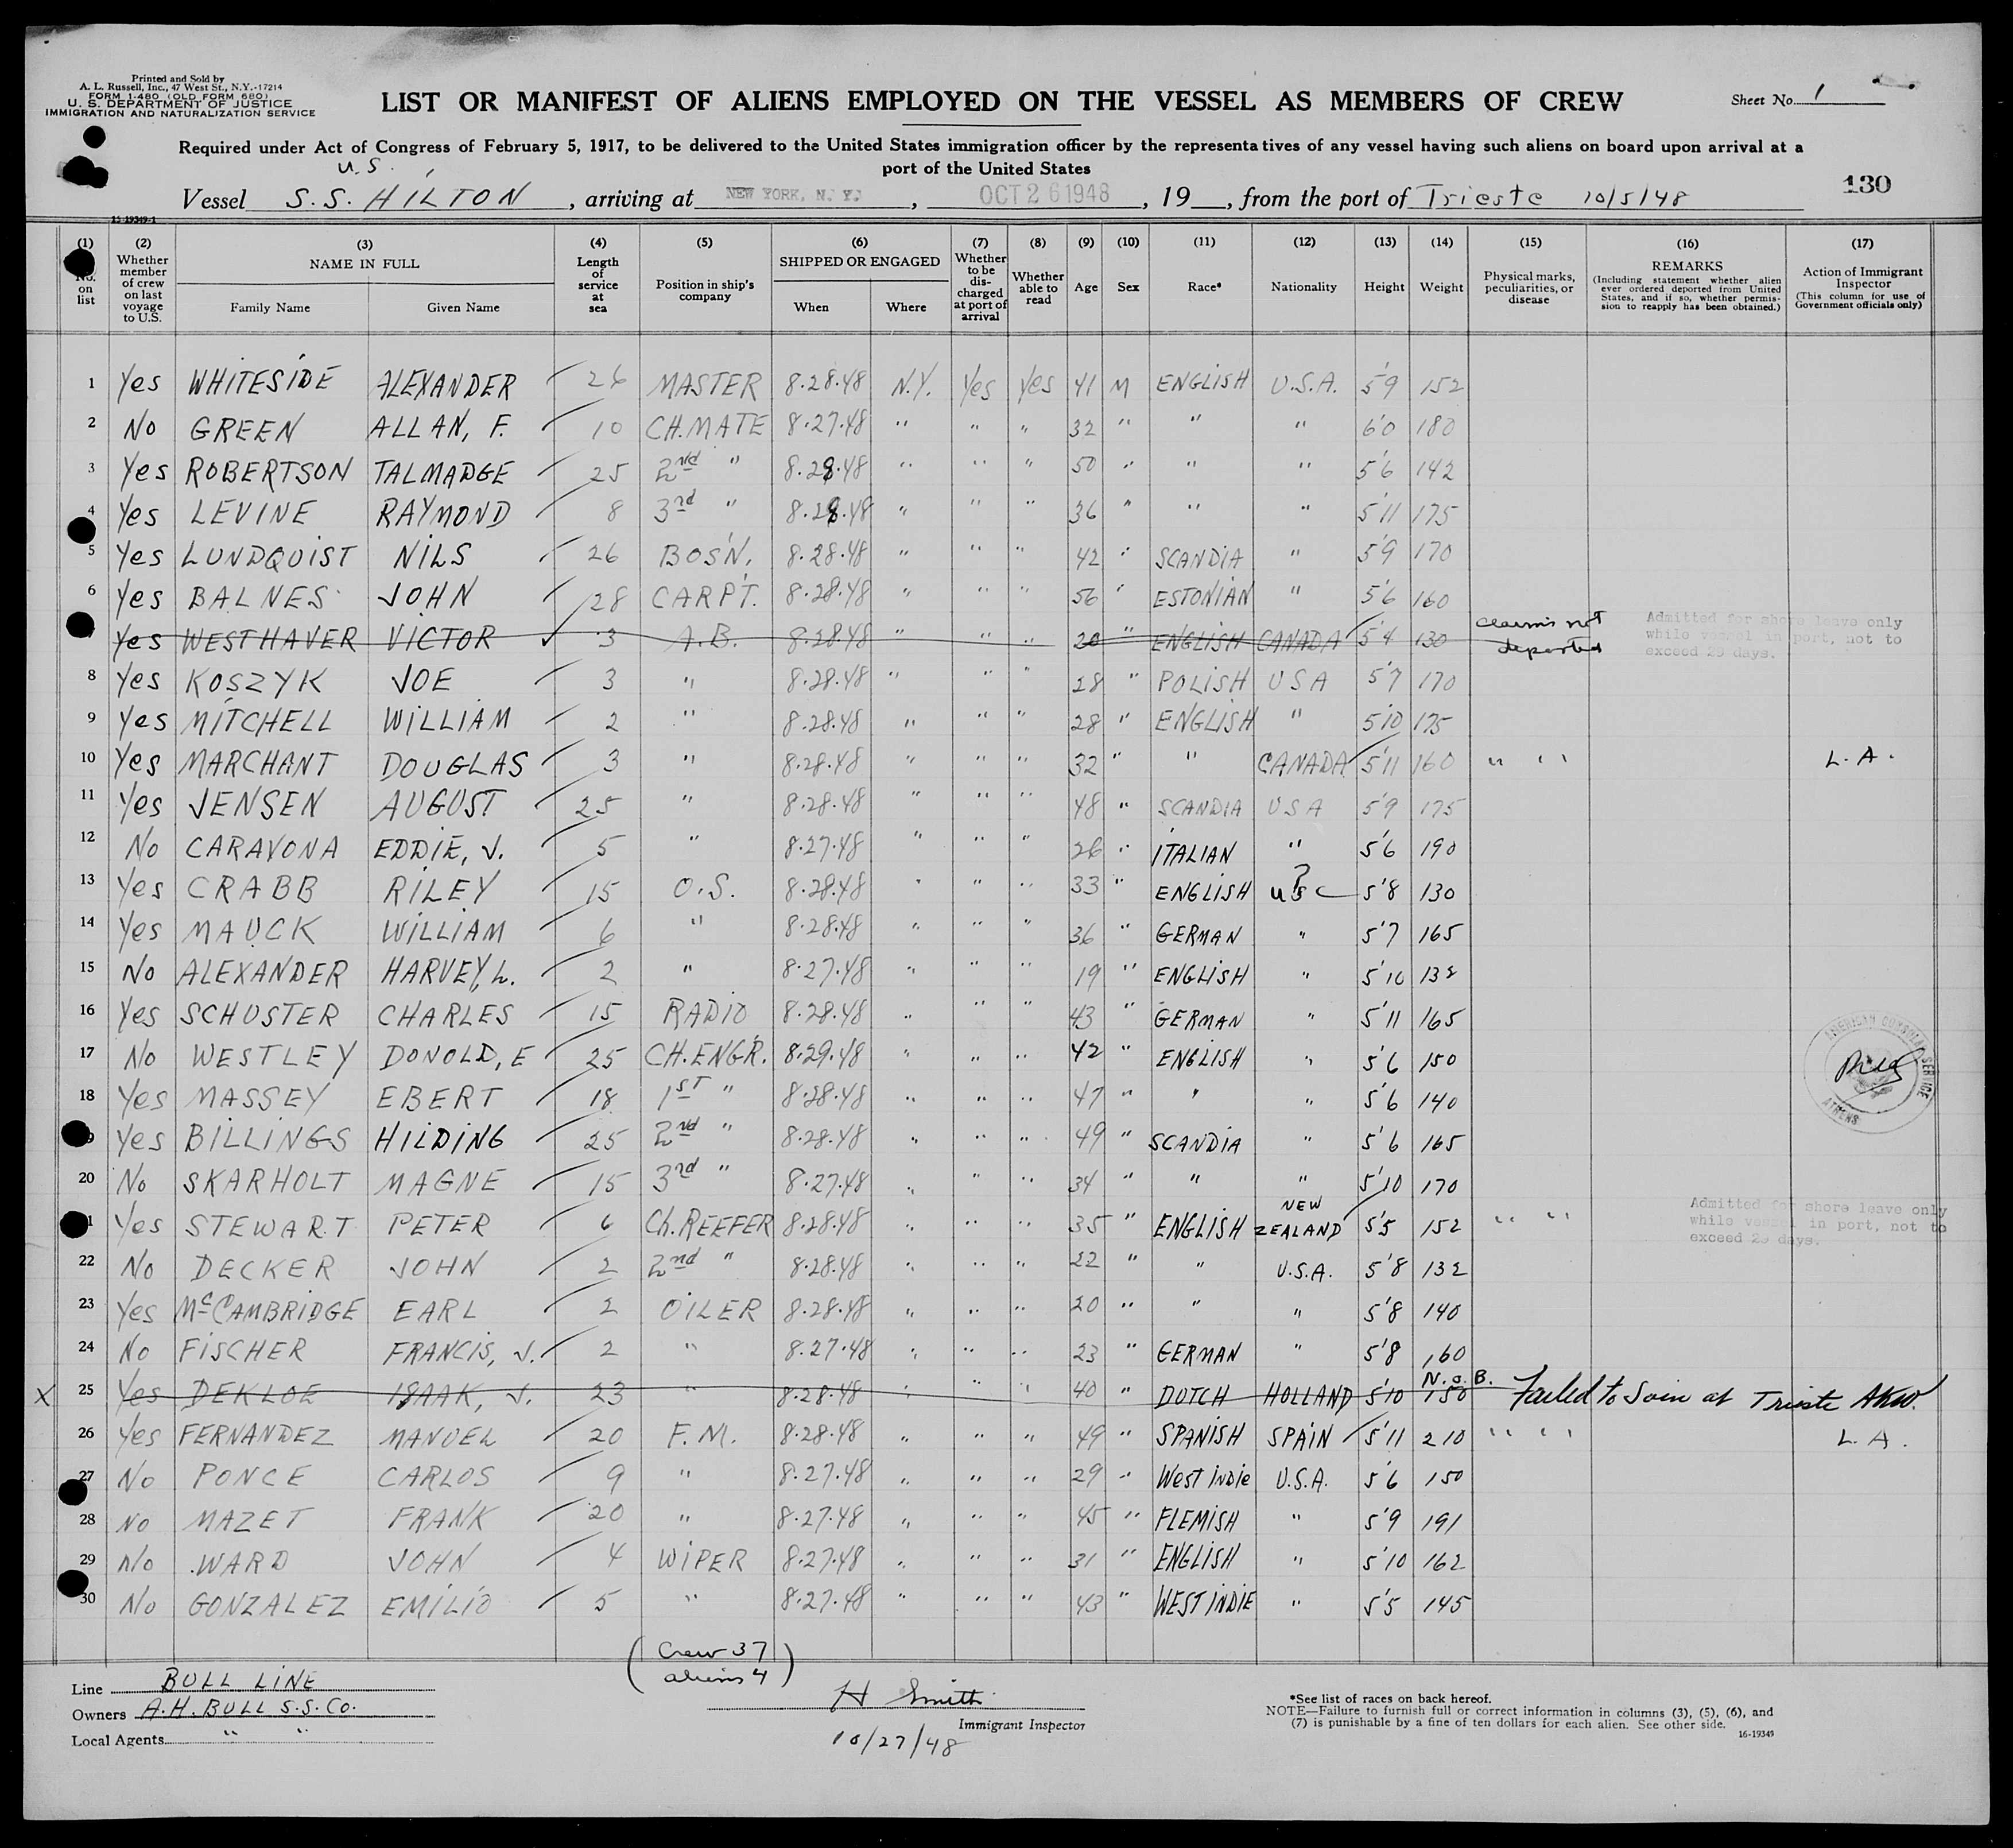 Printed and Sold by
A. L. Russell, Inc., 47 West St., N.Y.-17214
FORM 1-480 (OLD FORM 680)
U. S. DEPARTMENT OF JUSTICE
IMMIGRATION AND NATURALIZATION SERVICE
LIST OR MANIFEST OF ALIENS EMPLOYED ON THE VESSEL AS MEMBERS OF CREW
Sheet No. 1
Required under Act of Congress of February 5, 1917, to be delivered to the United States immigration officer by the representatives of any vessel having such aliens on board upon arrival at a
port of the United States
U.S.
Vessel S.S. HILTON, arriving at NEW YORK, N. Y., OCT 26 1948, 19__, from the port of Trieste 10/5/48
130
15-19349-1
(1) No. on list (2) Whether member of crew on last voyage to U.S. (3) NAME IN FULL Family Name Given Name (4) Length of service at sea (5) Position in ship's company (6) SHIPPED OR ENGAGED When Where (7) Whether to be discharged at port of arrival (8) Whether able to read (9) Age (10) Sex (11) Race* (12) Nationality (13) Height (14) Weight (15) Physical marks, peculiarities, or disease (16) REMARKS (Including statement whether alien ever ordered deported from United States, and if so, whether permission to reapply has been obtained.) (17) Action of Immigrant Inspector (This column for use of Government officials only)
1 Yes WHITESIDE ALEXANDER 26 MASTER 8.28.48 N.Y. Yes Yes 41 M ENGLISH U.S.A. 5'9 152
2 No GREEN ALLAN, F. 10 CH.MATE 8.27.48 " " " 32 " " " 6'0 180
3 Yes ROBERTSON TALMADGE 25 2nd " 8.28.48 " " " 50 " " " 5'6 142
4 Yes LEVINE RAYMOND 8 3rd " 8.28.48 " " " 36 " " " 5'11 175
5 Yes LUNDQUIST NILS 26 BOS'N. 8.28.48 " " " 42 " SCANDIA " 5'9 170
6 Yes BALNES JOHN 28 CARPT. 8.28.48 " " " 56 " ESTONIAN " 5'6 160
Yes WESTHAVER VICTOR 3 A.B. 8.28.48 " " " 20 " ENGLISH CANADA 5'4 130 claims not deported Admitted for shore leave only while vessel in port, not to exceed 29 days.
8 Yes KOSZYK JOE 3 " 8.28.48 " " " 28 " POLISH USA 5'7 170
9 Yes MITCHELL WILLIAM 2 " 8.28.48 " " " 28 " ENGLISH " 5'10 175
10 Yes MARCHANT DOUGLAS 3 " 8.28.48 " " " 32 " " CANADA 5'11 160 " " L. A.
11 Yes JENSEN AUGUST 25 " 8.28.48 " " " 48 " SCANDIA USA 5'9 175
12 No CARAVONA EDDIE, J. 5 " 8.27.48 " " " 26 " ITALIAN " 5'6 190
13 Yes CRABB RILEY 15 O.S. 8.28.48 " " " 33 " ENGLISH USC ? 5'8 130
14 Yes MAUCK WILLIAM 6 " 8.28.48 " " " 36 " GERMAN " 5'7 165
15 No ALEXANDER HARVEY, L. 2 " 8.27.48 " " " 19 " ENGLISH " 5'10 132
16 Yes SCHUSTER CHARLES 15 RADIO 8.28.48 " " " 43 " GERMAN " 5'11 165
17 No WESTLEY DONOLD, E 25 CH.ENGR. 8.29.48 " " " 42 " ENGLISH " 5'6 150
AMERICAN CONSULAR SERVICE ATHENS
18 Yes MASSEY EBERT 18 1ST " 8.28.48 " " " 47 " " " 5'6 140
9 Yes BILLINGS HILDING 25 2nd " 8.28.48 " " " 49 " SCANDIA " 5'6 165
20 No SKARHOLT MAGNE 15 3rd " 8.27.48 " " " 34 " " " 5'10 170
1 Yes STEWART PETER 6 Ch.REEFER 8.28.48 " " " 35 " ENGLISH NEW ZEALAND 5'5 152 " " Admitted for shore leave only while vessel in port, not to exceed 29 days.
22 No DECKER JOHN 2 2nd " 8.28.48 " " " 22 " " U.S.A. 5'8 132
23 Yes McCAMBRIDGE EARL 2 OILER 8.28.48 " " " 20 " " " 5'8 140
24 No FISCHER FRANCIS, J. 2 " 8.27.48 " " " 23 " GERMAN " 5'8 160
X 25 Yes DEKLOE ISAAK, J. 23 " 8.28.48 " " " 40 " DUTCH HOLLAND 5'10 150 N.o.B. Failed to Join at Trieste AKW.
26 Yes FERNANDEZ MANUEL 20 F.M. 8.28.48 " " " 49 " SPANISH SPAIN 5'11 210 " " L. A.
27 No PONCE CARLOS 9 " 8.27.48 " " " 29 " West Indie U.S.A. 5'6 150
28 No MAZET FRANK 20 " 8.27.48 " " " 45 " FLEMISH " 5'9 191
29 No WARD JOHN 4 WIPER 8.27.48 " " " 31 " ENGLISH " 5'10 162
30 No GONZALEZ EMILIO 5 " 8.27.48 " " " 43 " WEST INDIE " 5'5 145
(Crew 37
aliens 4)
Line BULL LINE
Owners A.H. BULL S.S. Co.
Local Agents " "
H Smith
Immigrant Inspector
10/27/48
*See list of races on back hereof.
NOTE—Failure to furnish full or correct information in columns (3), (5), (6), and
(7) is punishable by a fine of ten dollars for each alien. See other side.
16-19349